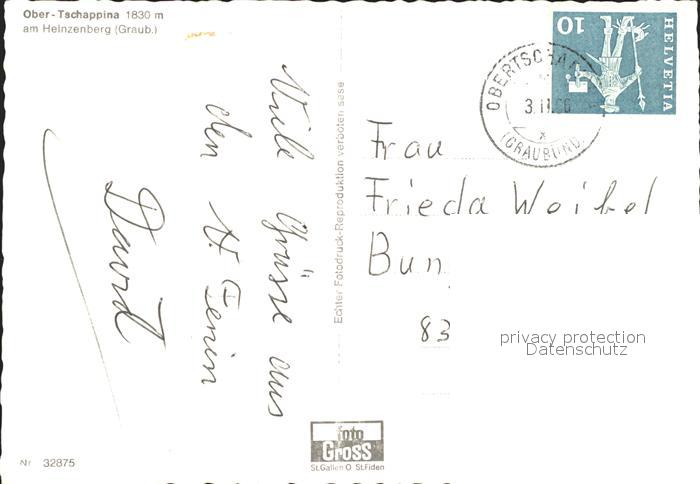 Ober-Tschappina 1830 m
am Heinzenberg (Graub.)
Viele Grüsse aus
den H. Ferien
David
Echter Fotodruck-Reproduktion verboten
Frau
Frieda Weibel
Bun
83
HELVETIA
10
OBERTSCHAP
3.II.66
(GRAUBÜND
privacy protection
Datenschutz
foto
Gross
St.Gallen O St.Fiden
Nr 32875